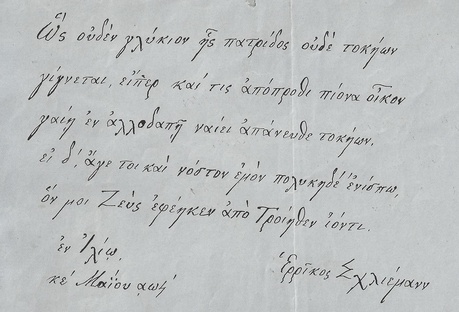 Ὣς οὐδὲν γλύκιον ἧς πατρίδος οὐδὲ τοκήων
γίγνεται, εἴπερ καί τις ἀπόπροθι πίονα οἶκον
γαίῃ ἐν ἀλλοδαπῇ ναίει ἀπάνευθε τοκήων.
εἰ δ', ἄγε τοι καὶ νόστον ἐμὸν πολυκηδέ' ἐνίσπω,
ὅν μοι Ζεὺς ἐφέηκεν ἀπὸ Τροίηθεν ἰόντι.
ἐν Ἰλίῳ.
κε' Μαΐου
Ἑρρῖκος Σχλιέμανν